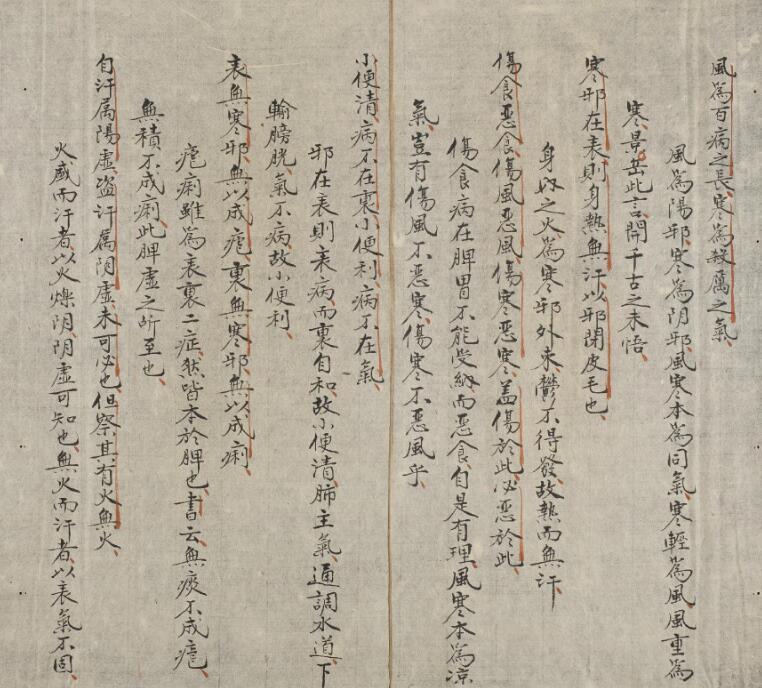 風為百病之長、寒為殺厲之氣
風為陽邪、寒為阴邪、風寒本為同氣、寒輕為風、風重為
寒、景岳此言、開千古之未悟、
寒邪在表、則身熱無汗、以邪閉皮毛也、
身中之火、為寒邪外束、鬱不得發、故熱而無汗、
傷食惡食、傷風惡風、傷寒惡寒、盖傷於此、必惡於此、
傷食病在脾胃、不能受納而惡食、自是有理、風寒本為凉
氣、豈有傷風不惡寒、傷寒不惡風乎、
小便清、病不在裏、小便利、病不在氣、
邪在表、則表病而裏自和、故小便清、肺主氣、通調水道、下
輸膀胱、氣不病、故小便利、
表無寒邪、無以成疟、裏無寒邪、無以成痢、
疟痢雖為表裏二症、然皆本於脾也、書云、無痰不成瘧、
無積不成痢、此脾虛之所至也、
自汗属陽虛、盗汗属阴虛、未可必也、但察其有火無火、
火盛而汗者、以火爍阴、阴虛可知也、無火而汗者、以表氣不固、